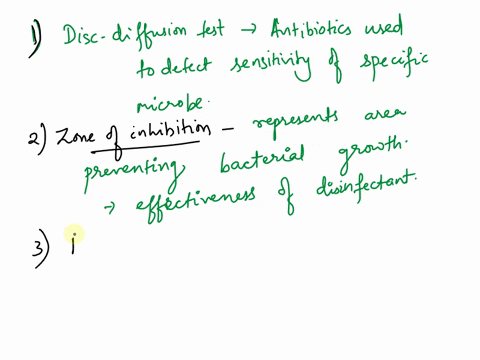 1) Disc-diffusion test → Antibiotics used
to detect sensitivity of specific
microbe.
2) Zone of inhibition - represents area
preventing bacterial growth.
→ effectiveness of disinfectant.
3) i